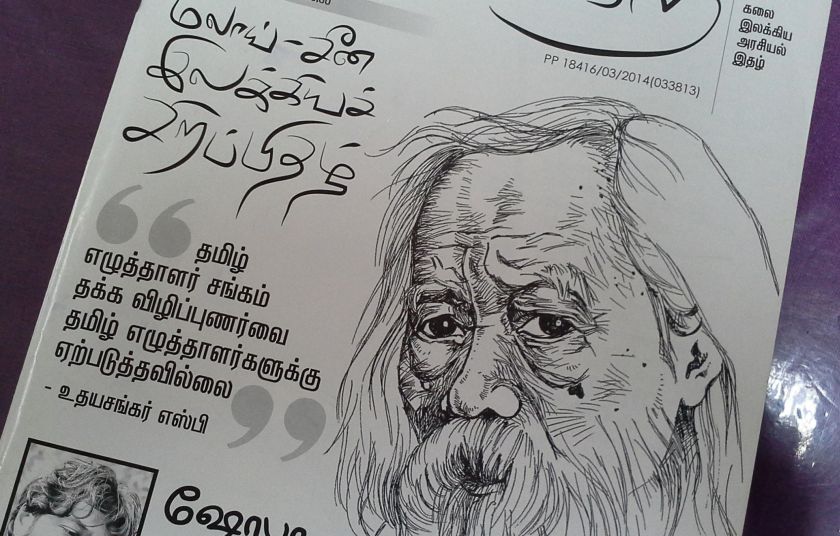 மலாய் - சீன
இலக்கியச்
சிறப்பிதழ்
கலை
இலக்கிய
அரசியல்
இதழ்
PP 18416/03/2014(033813)
“தமிழ்
எழுத்தாளர் சங்கம்
தக்க விழிப்புணர்வை
தமிழ் எழுத்தாளர்களுக்கு
ஏற்படுத்தவில்லை”
- உதயசங்கர் எஸ்பி